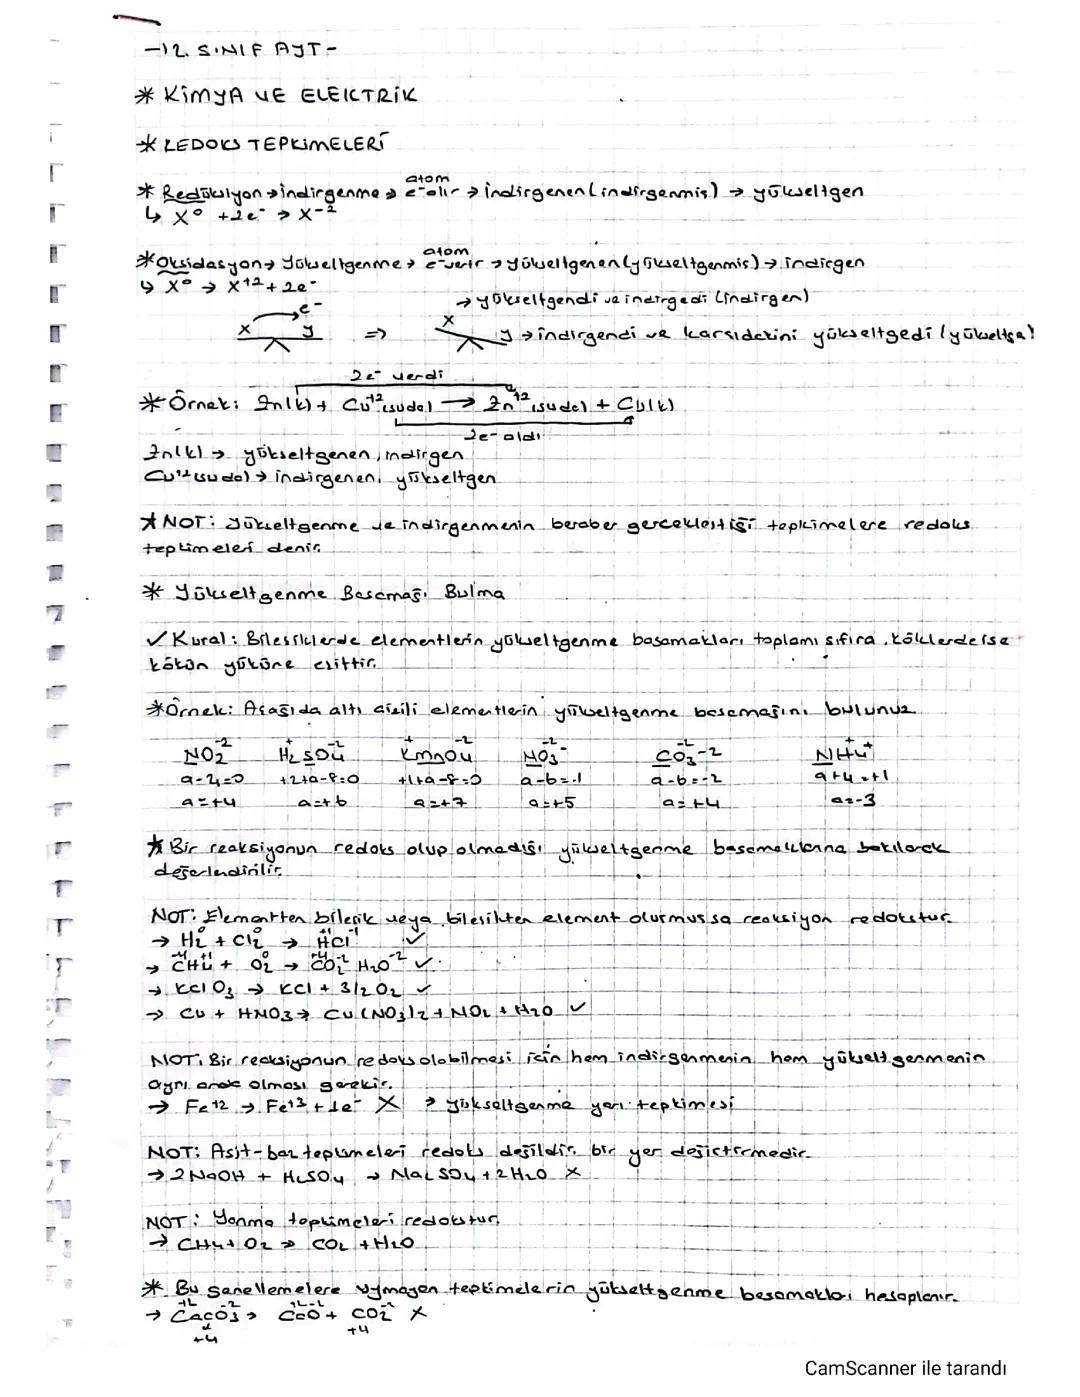 -12. SINIF AYT-
* KİMYA VE ELEKTRİK
* REDOKS TEPKİMELERİ
* Redüksiyon → indirgenme → atom e⁻ alır → indirgenen (indirgenmiş) → yükseltgen
↳ X⁰ +2e⁻ → X⁻²
* Oksidasyon → Yükseltgenme → atom e⁻ verir → yükseltgenen (yükseltgenmiş) → indirgen
↳ X⁰ → X⁺² + 2e⁻
→ yükseltgendi ve indirgedi (indirgen)
x e⁻ y ⇒ x y → indirgendi ve karşıdakini yükseltgedi (yükseltge)
2e⁻ verdi
* Örnek: Zn(k) + Cu⁺²(suda) → Zn⁺²(suda) + Cu(k)
2e⁻ aldı
Zn(k) → yükseltgenen, indirgen
Cu⁺²(suda) → indirgenen, yükseltgen
* NOT: Yükseltgenme ve indirgenmenin beraber gerçekleştiği tepkimelere redoks
tepkimeleri denir.
* Yükseltgenme Basamağı Bulma
✓ Kural: Bileşiklerde elementlerin yükseltgenme basamakları toplamı sıfıra, köklerde ise
kökün yüküne eşittir.
* Örnek: Aşağıda altı çizili elementlerin yükseltgenme basamağını bulunuz
NO₂⁻² H₂⁺SO₄⁻² K⁺MnO₄⁻² NO₃⁻²⁻ CO₃⁻²⁻² NH₄⁺⁺
a-4=0 +2+a-8=0 +1+a-8=0 a-6=-1 a-6=-2 a+4=+1
a=+4 a=+6 a=+7 a=+5 a=+4 a=-3
* Bir reaksiyonun redoks olup olmadığı yükseltgenme basamaklarına bakılarak
değerlendirilir.
NOT: Elementten bileşik veya bileşikten element oluşmuşsa reaksiyon redokstur.
→ H₂⁰ + Cl₂⁰ → H⁺¹Cl⁻¹ ✓
→ C⁻⁴H₄⁺¹ + O₂⁰ → C⁺⁴O₂⁻² H₂O⁻² ✓
→ KClO₃ → KCl + 3/2 O₂ ✓
→ Cu + HNO₃ → Cu(NO₃)₂ + NO₂ + H₂O ✓
NOT: Bir reaksiyonun redoks olabilmesi için hem indirgenmenin hem yükseltgenmenin
aynı anda olması gerekir.
→ Fe⁺² → Fe⁺³ + 1e⁻ X → yükseltgenme yarı tepkimesi
NOT: Asit-baz tepkimeleri redoks değildir, bir yer değiştirmedir.
→ 2NaOH + H₂SO₄ → Na₂SO₄ + 2H₂O X
NOT: Yanma tepkimeleri redokstur.
→ CH₄ + O₂ → CO₂ + H₂O
* Bu genellemelere uymayan tepkimelerin yükseltgenme basamakları hesaplanır.
→ Ca⁺²CO₃⁻² → Ca⁺²O⁻² + CO₂⁻² X
+4 +4
CamScanner ile tarandı